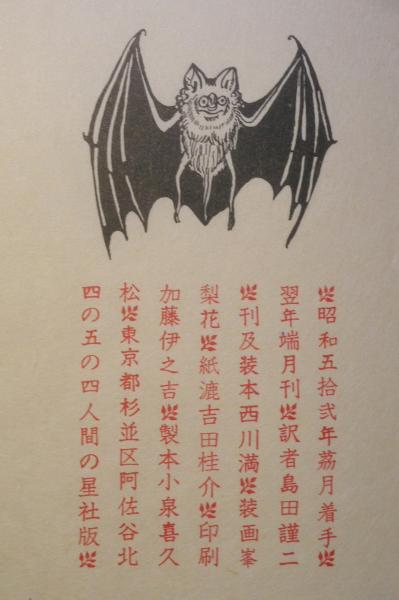 昭和五拾弐年茘月着手
翌年端月刊 訳者島田謹二
刊及装本西川満 装画峯
梨花 紙漉吉田桂介 印刷
加藤伊之吉 製本小泉喜久
松 東京都杉並区阿佐谷北
四の五の四人間の星社版